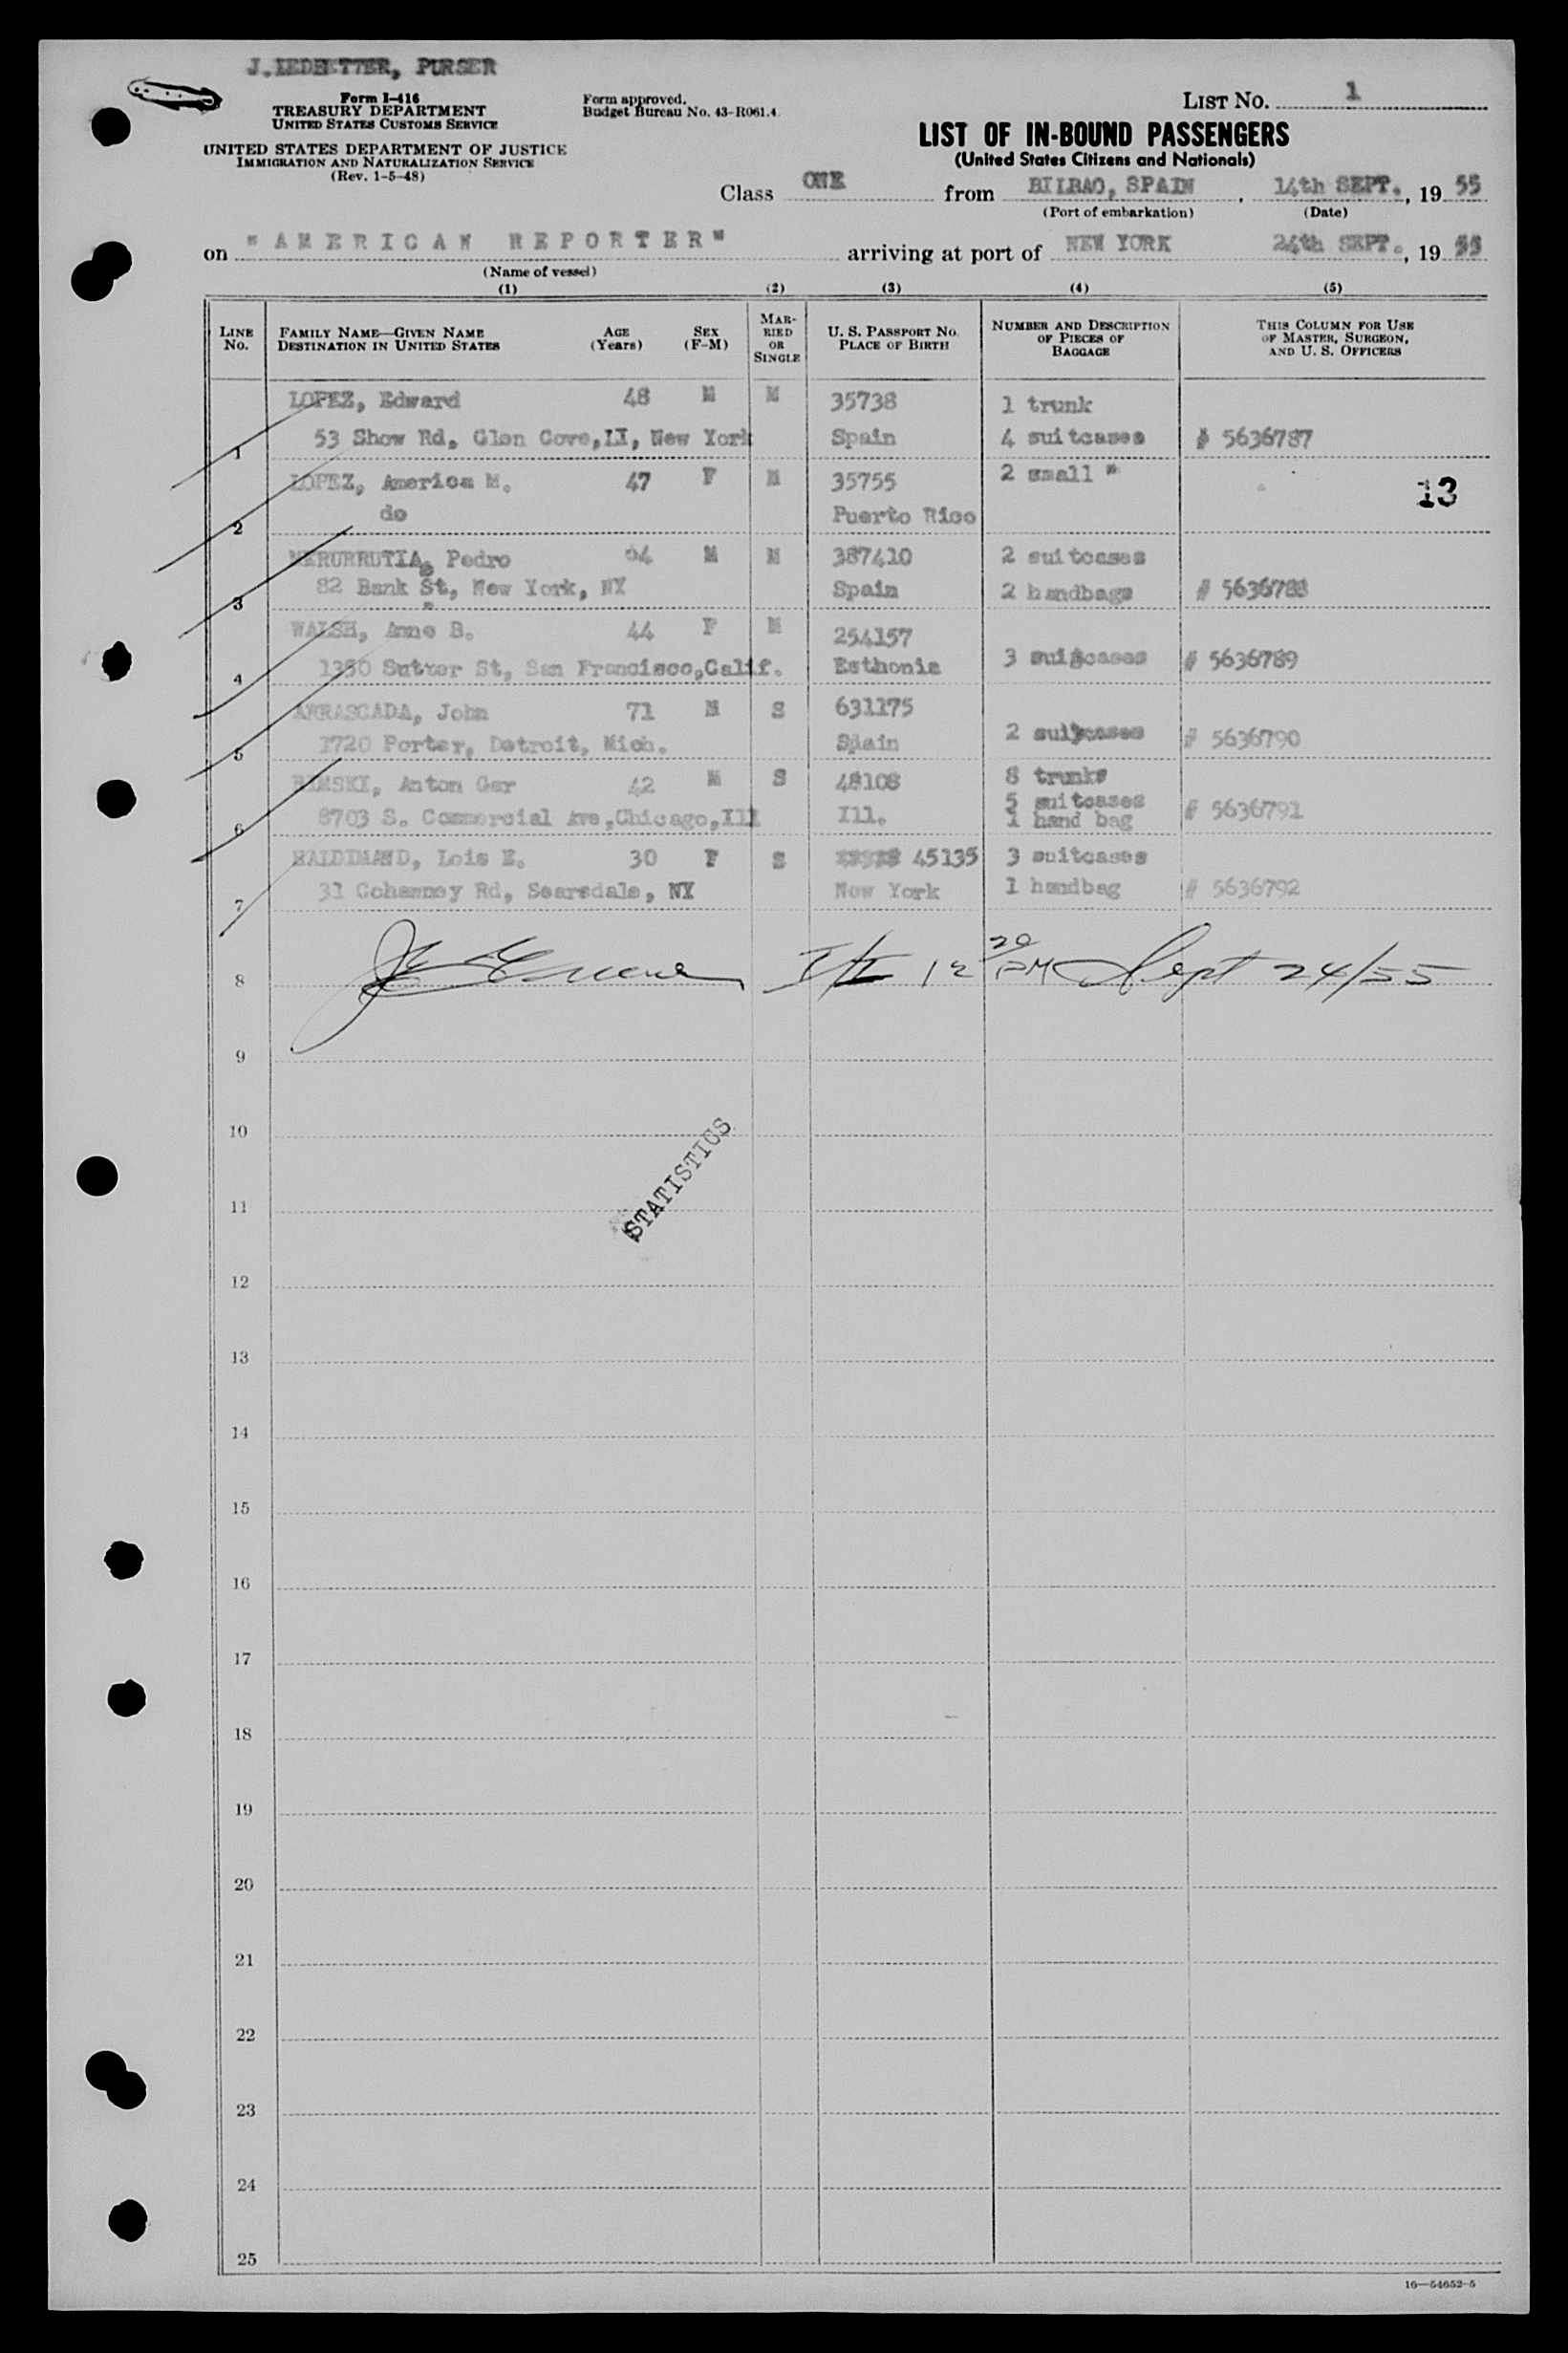 J. LEDBETTER, PURSER
Form I-416
TREASURY DEPARTMENT
UNITED STATES CUSTOMS SERVICE
UNITED STATES DEPARTMENT OF JUSTICE
IMMIGRATION AND NATURALIZATION SERVICE
(Rev. 1-5-48)
Form approved.
Budget Bureau No. 43-R061.4.
LIST NO. 1
LIST OF IN-BOUND PASSENGERS
(United States Citizens and Nationals)
Class ONE from BILBAO, SPAIN, 14th SEPT., 19 55
(Port of embarkation) (Date)
on "AMERICAN REPORTER" arriving at port of NEW YORK 24th SEPT., 19 55
(Name of vessel)
(1) (2) (3) (4) (5)
LINE NO. FAMILY NAME—GIVEN NAME DESTINATION IN UNITED STATES AGE (Years) SEX (F-M) MARRIED OR SINGLE U. S. PASSPORT NO. PLACE OF BIRTH NUMBER AND DESCRIPTION OF PIECES OF BAGGAGE THIS COLUMN FOR USE OF MASTER, SURGEON, AND U. S. OFFICERS
LOPEZ, Edward 48 M M 35738 1 trunk
1 53 Show Rd, Glen Cove, LI, New York Spain 4 suitcases # 5636787
LOPEZ, America M. 47 F M 35755 2 small " 13
2 do Puerto Rico
Pedro M M 387410 2 suitcases
3 82 Bank St, New York, NY Spain 2 handbags # 5636788
WALSH, Anne B. 44 F M 254157
4 Sutter St, San Francisco,Calif. Esthonia 3 suitcases # 5636789
ARRASCADA, John 71 M S 631175
5 1720 Porter, Detroit, Mich. Spain 2 suitcases # 5636790
Anton Ger 42 M S 48108 8 trunks
5 suitcases
6 8703 S. Commercial Ave,Chicago,Ill Ill. 1 hand bag # 5636791
HALDIMAND, Lois E. 30 F S 45135 3 suitcases
7 31 Rd, Scarsdale, NY New York 1 handbag # 5636792
8 12 20 PM Sept 24/55
9
10
STATISTICS
11
12
13
14
15
16
17
18
19
20
21
22
23
24
25
16—54652-5